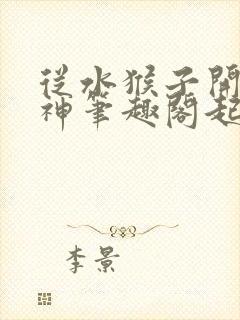 從水猴子開
神筆趣閣起
李景